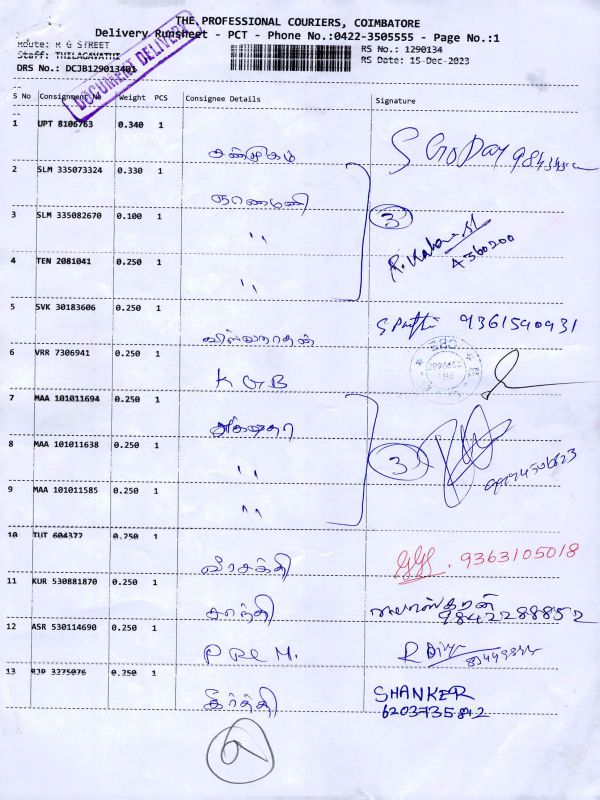 THE PROFESSIONAL COURIERS, COIMBATORE
Delivery Runsheet - PCT - Phone No.:0422-3505555 - Page No.:1
Route: M G STREET
RS No.: 1290134
Staff: THILAGAVATHI
RS Date: 15-Dec-2023
DRS No.: DCJB129013401
DOCUMENT DELIVERY
S No Consignment No Weight PCS Consignee Details Signature
1 UPT 8106763 0.340 1
சண்முகம்
2 SLM 335073324 0.330 1
3 SLM 335082670 0.100 1
" 3
4 TEN 2081041 0.250 1
A360200
"
5 SVK 30183606 0.250 1
விஸ்வநாதன் 9361590931
6 VRR 7306941 0.250 1
K G B
7 MAA 101011694 0.250 1
8 MAA 101011638 0.250 1
" 3
9 MAA 101011585 0.250 1
"
10 TUT 604377 0.250 1
வீரசக்தி 9363105018
11 KUR 530881870 0.250 1
சாந்தி 9842288852
12 ASR 530114690 0.250 1
PREM.
13 RJP 3275076 0.250 1
கீர்த்தி SHANKER
6203735842